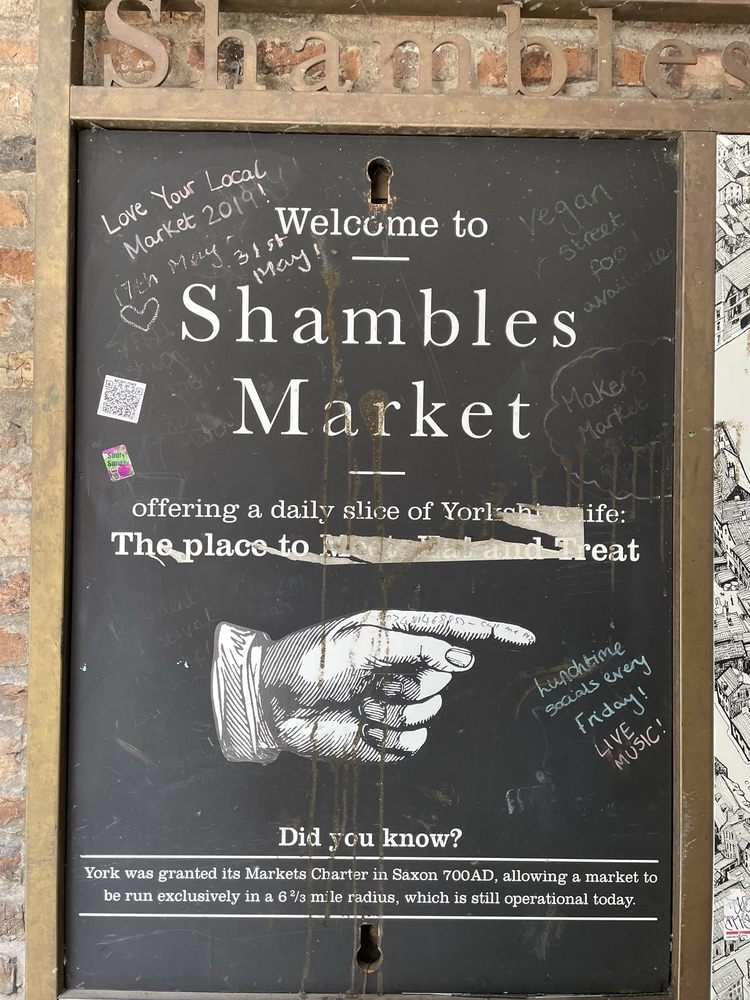 Shambles
Love Your Local
Market 2019!
17th May -
31st
May!
Welcome to
Shambles
Market
vegan
street
food
available!
Makers
Market
offering a daily slice of Yorkshire life:
The place to Meet, Eat and Treat
call me
lunchtime
socials every
Friday!
LIVE
MUSIC!
Did you know?
York was granted its Markets Charter in Saxon 700AD, allowing a market to
be run exclusively in a 6 2/3 mile radius, which is still operational today.